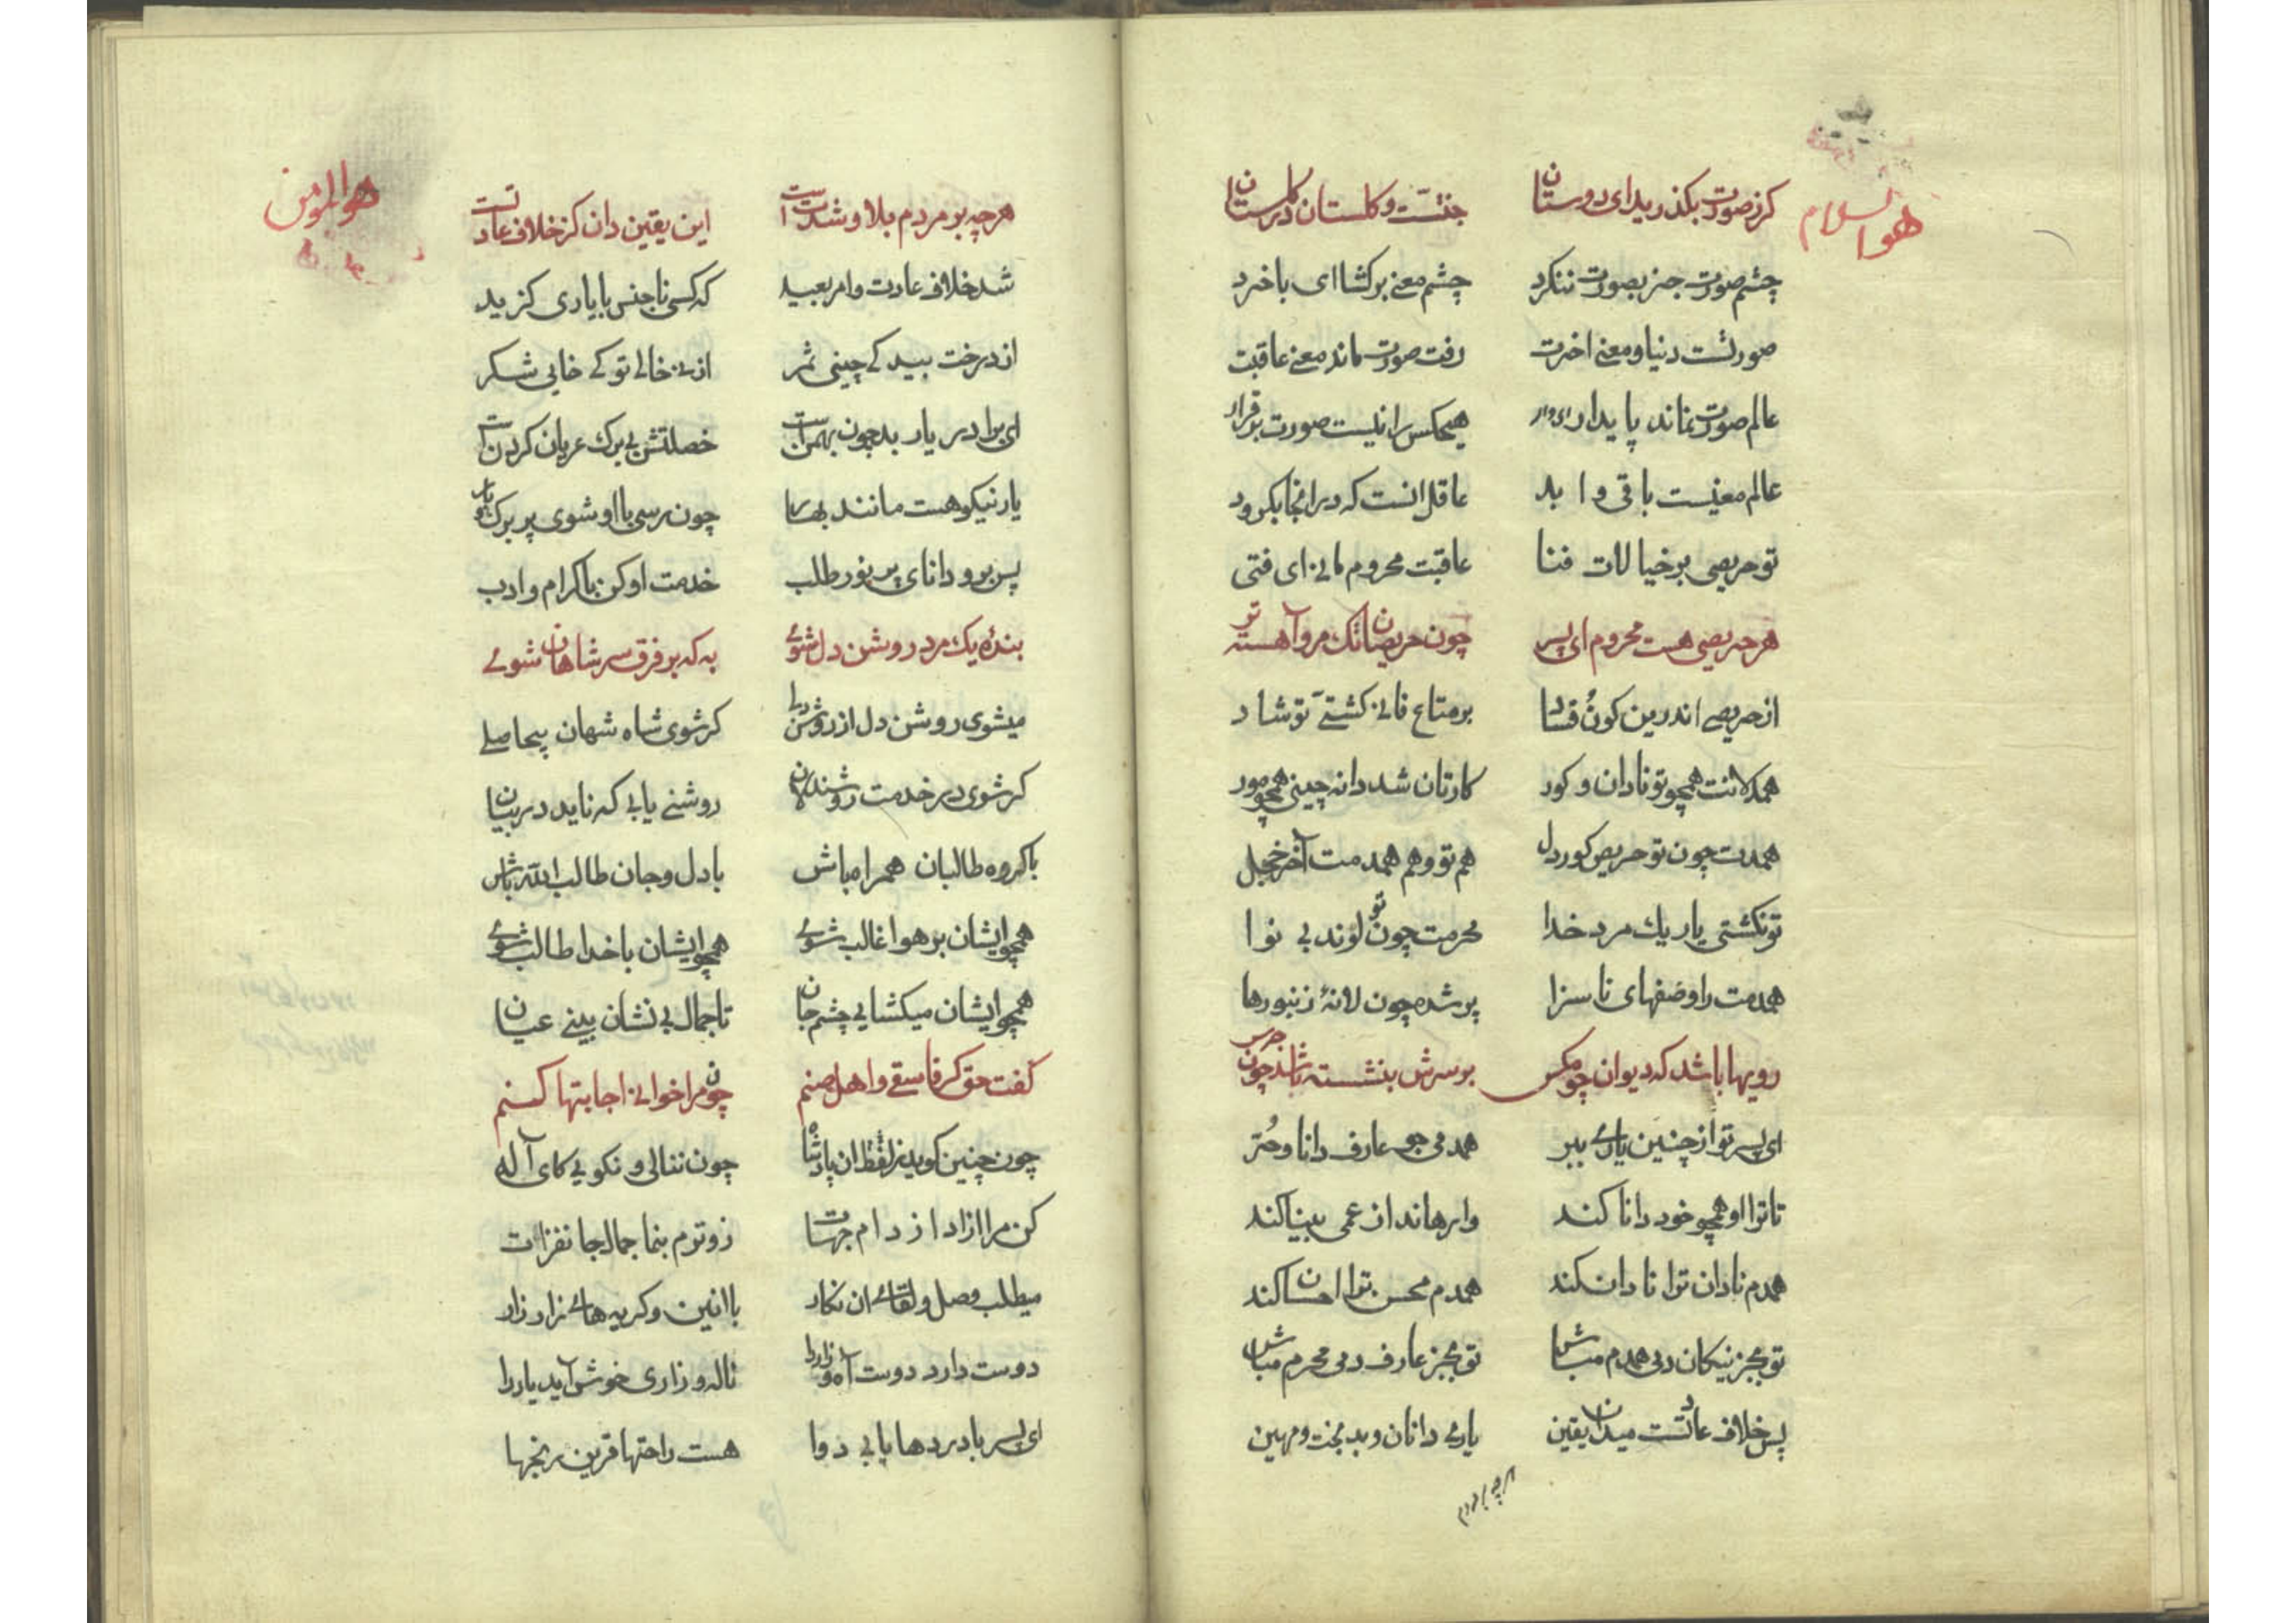 هوالسلام
کرز صورت بکذرید ای دوستان جنتست و کلستان در کلستان
چشم صورت جز بصورت ننکرد چشم معنی برکشا ای باخرد
صورتست دنیا و معنی اخرت رفت صورت ماند معنی عاقبت
عالم صورت نماند پایدار هیچکس را نیست صورت برقرار
عالم معنیست باقی و ابد عاقل انست که درانجا بکرود
تو حریصی بر خیالات فنا عاقبت محروم مانی ای فتی
هر حریصی هست محروم ای پسر چون حریصان تک مرو آهسته تر
از حریصی اندرین کون فساد بر متاع فانی کشتی تو شاد
همچو تو نادان و کور کارتان شد دانه چینی همچو مور
همدمت چون تو حریص کور دل هم تو و هم همدمت آخر خجل
تو نکشتی یار یك مرد خدا محرمت چون تو لوند بی نوا
همدمت را وصفهای ناسزا پر شده چون لانهٔ زنبورها
رویها باشد که دیوان چو مکس بر سرش بنشسته باشد چون جرس
ای پسر تو از چنین یاری ببر همدمی جو عارف دانا و حر
تا ترا او همچو خود دانا کند وارهاند از عمی بینا کند
همدم نادان ترا نادان کند همدم محسن ترا احسان کند
تو بجز نیکان دمی همدم مباش تو بجز عارف دمی محرم مباش
پس خلاف عادتست میدان یقین یاری دانان و بدبخت و مهین
هرچه بر مردم
هوالمؤمن
هرچه بر مردم بلا و شدتست این یقین دان کز خلاف عادتست
شد خلاف عادت و امر بعید که کسی ناجنس با یاری کزید
از درخت بید کی چینی ثمر از نی خالی تو کی خایی شکر
ای برادر یار بد چون بهمن است خصلتش بی برك عریان کردن است
یار نیکو هست مانند بهار چون رسی با او شوی پر برك بار
پس برو دانای پر نور طلب خدمت او کن باکرام و ادب
بندهٔ یك مرد روشن دل شوی به که بر فرق سر شاهان شوی
میشوی روشن دل از روشن دلی کر شوی شاه شهان بیحاصلی
کر شوی در خدمت روشندلان روشنی یابی که ناید در بیان
با کروه طالبان همراه باش با دل و جان طالب الله باش
همچو ایشان بر هوا غالب شوی همچو ایشان با خدا طالب شوی
همچو ایشان میکشایی چشم جان تا جمال بی نشان بینی عیان
کفت حق کر فاسقی و اهل صنم چون مرا خوانی اجابتها کنم
چون چنین کوید ز لفظ ان پادشاه چون ننالی و نکویی کای آله
کن مرا ازاد از دام جهات زوترم بنما جمال جانفزات
میطلب وصل و لقای ان نکار با انین و کریه های زار زار
دوست دارد دوست آه و زار را ناله و زاری خوش آید یار را
ای پسر با دردها یابی دوا هست راحتها قرین رنجها